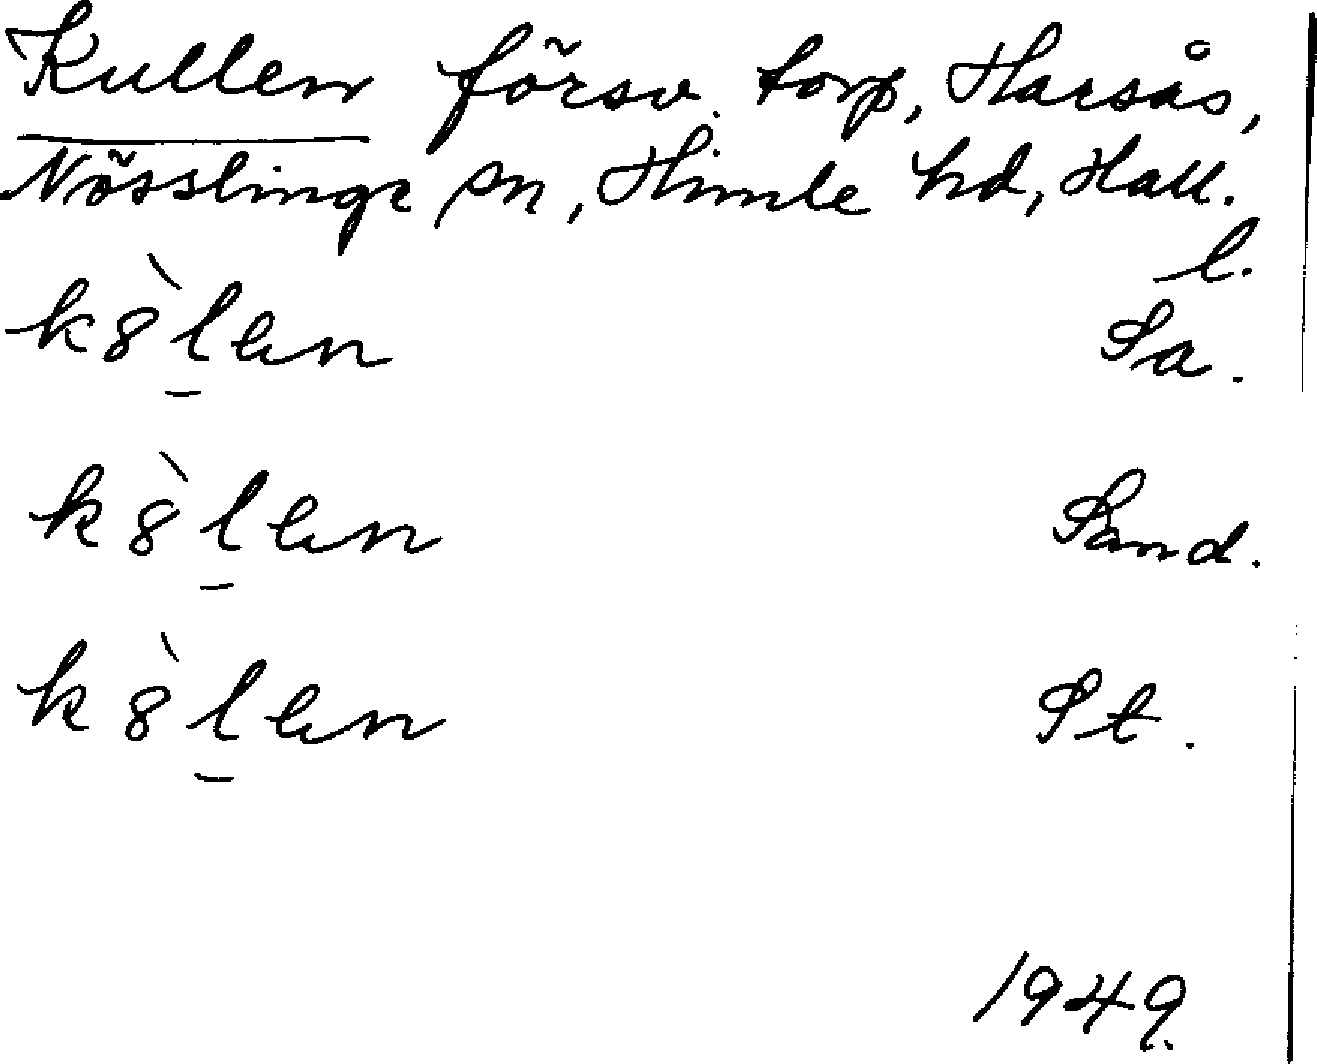 Kullen försv. torp, Harsås,
Nösslinge sn, Himle hd, Hall.
l.
k8̀l̲en Sa.
k8̀l̲en Sand.
k8̀l̲en St.
1949.